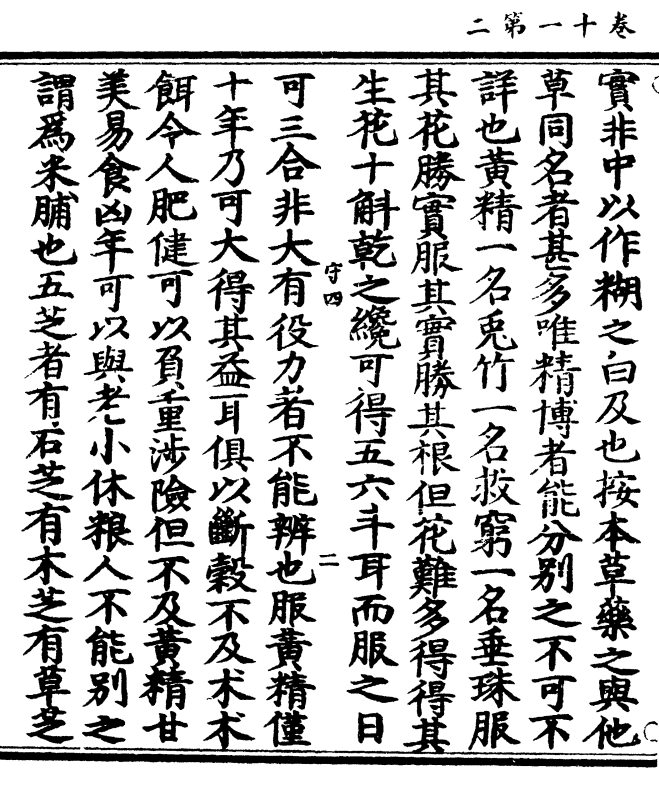 卷十一第二
實非中以作糊之白及也按本草藥之與他
草同名者甚多唯精博者能分別之不可不
詳也黃精一名兎竹一名救窮一名垂珠服
其花勝實服其實勝其根但花難多得得其
生花十斛乾之纔可得五六斗耳而服之日
可三合非大有役力者不能辨也服黃精僅
十年乃可大得其益耳俱以斷穀不及朮朮
餌令人肥健可以負重涉險但不及黃精甘
美易食凶年可以與老小休粮人不能別之
謂爲米脯也五芝者有石芝有木芝有草芝
守四
二